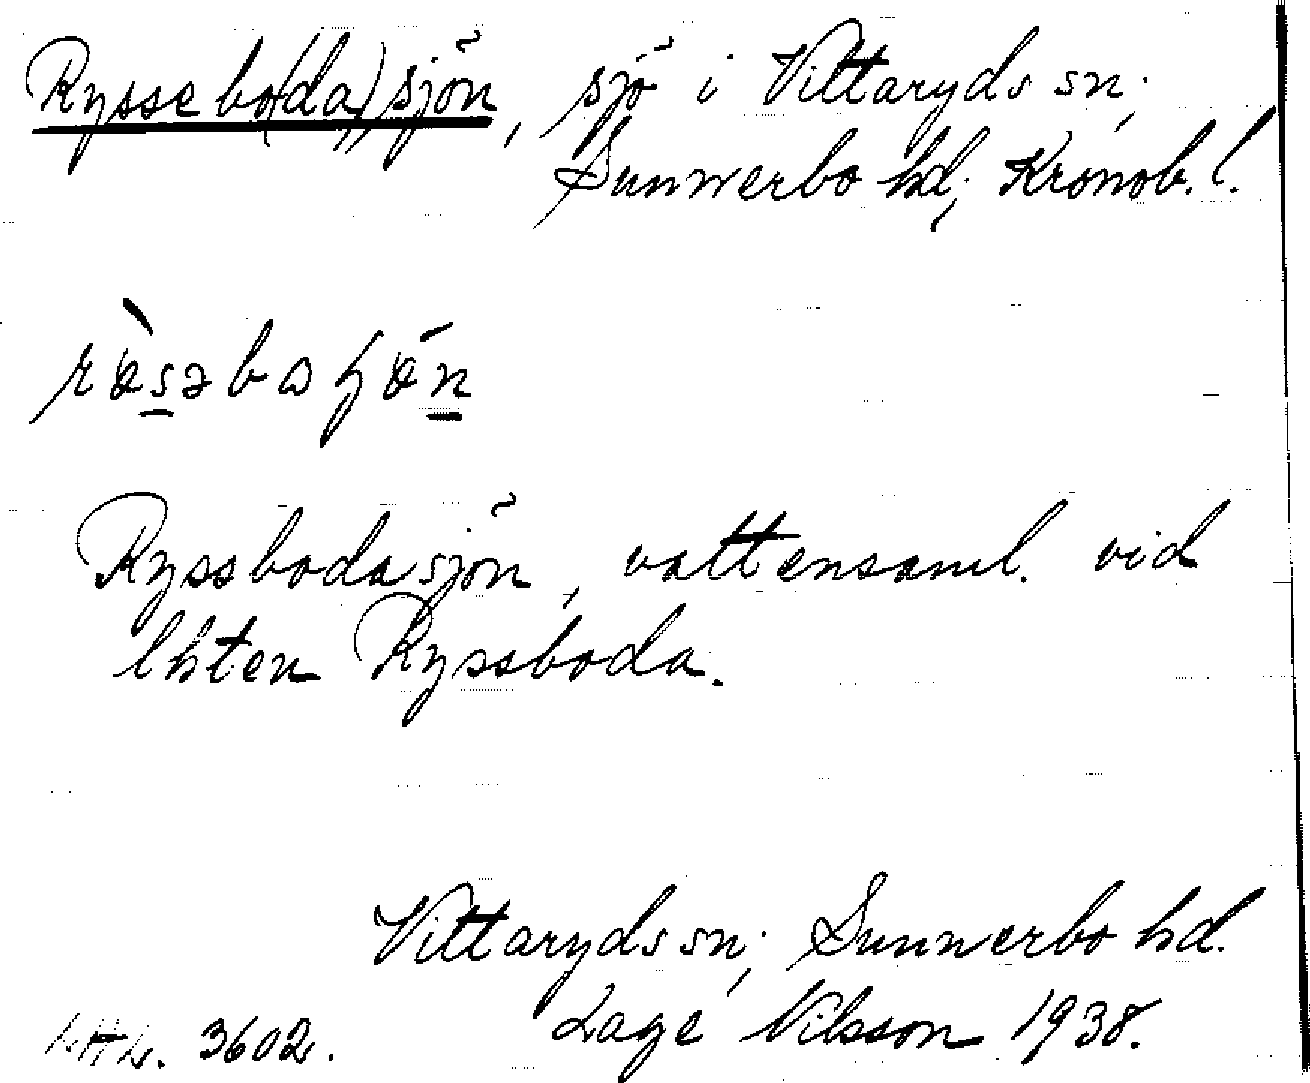 Rysse bo(da)sjön, sjö i Vittaryds sn;
Sunnerbo hd; Kronob. l.
Ryssbodasjön, vattensaml. vid
lhten Ryssboda.
Vittaryds sn; Sunnerbo hd.
3602. Lage Nilsson 1938.